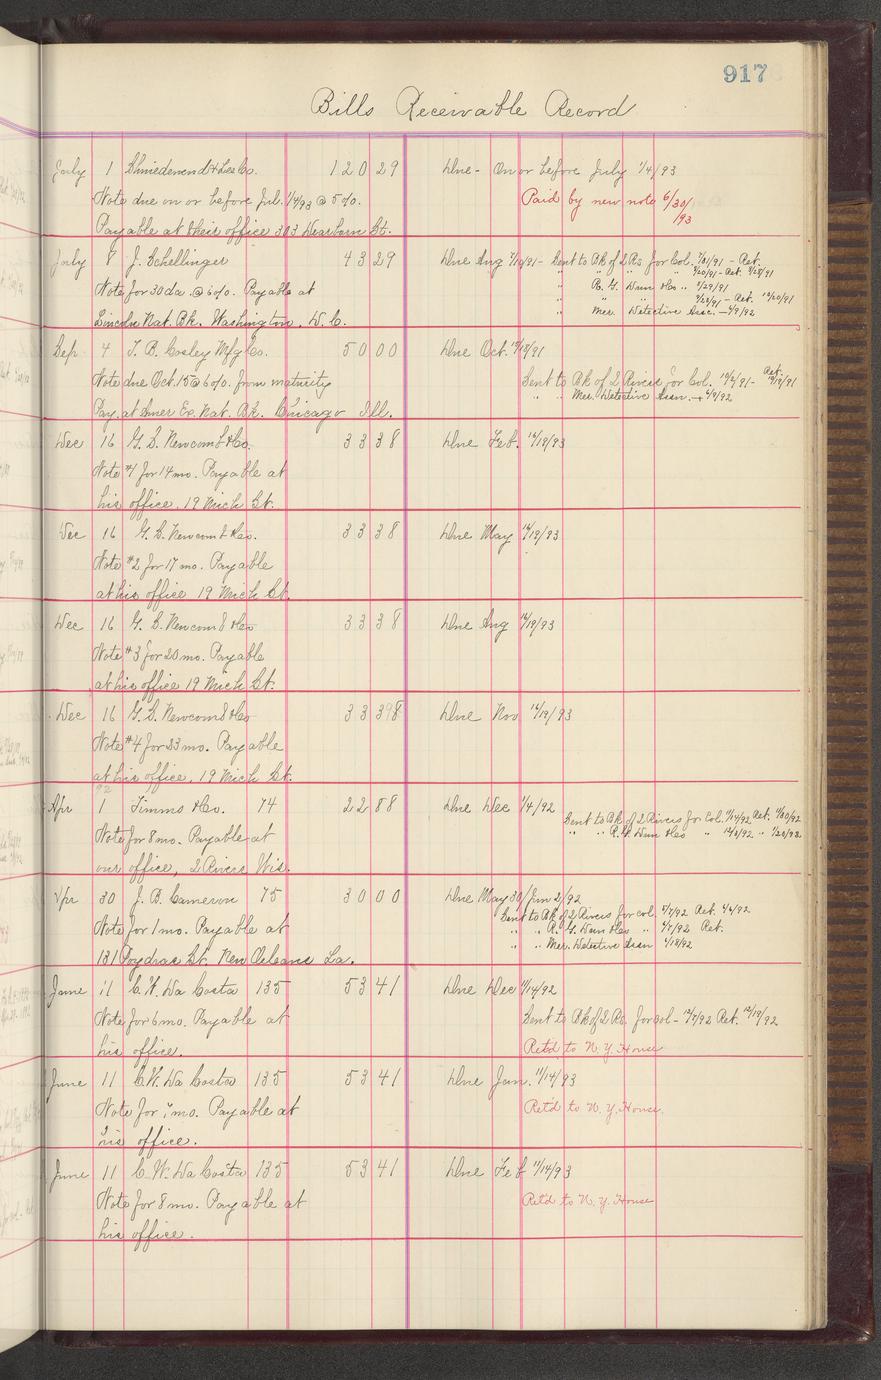 917
Bills Receivable Record
July 1 & Lee Co. 1 2 0 29 Due - On or before July 1/4/93
Note due on or before Jul. 1/4/93 @ 5%. Paid by new note 6/30/93
Payable at their office 303 Dearborn St.
July 8 J. Schellinger 43 29 Due Aug 7/10/91 - Sent to Bk of 2 Rs for Col. - Ret.
Note for 30 da. @ 6%. Payable at " R. G. Dun & Co "
Lincoln Nat. Bk. Washington, D. C. " Mer. Detective Assc. - 4/9/92
Sep. 4 T. B. Cosley Mfg Co. 50 00 Due Oct. 15/18/91
Note due Oct. 15 @ 6%. from maturity Sent to Bk of 2 Rivers for Col. - Ret.
Pay. at Amer Ex. Nat. Bk. Chicago Ill. " " Mer. Detective Assn. - 4/9/92
Dec 16 G. S. Newcomb & Co. 33 38 Due Feb. 16/19/93
Note #1 for 14 mo. Payable at
his office. 19 Mich St.
Dec 16 G. S. Newcomb & Co. 33 38 Due May 16/19/93
Note #2 for 17 mo. Payable
at his office 19 Mich St.
Dec 16 G. S. Newcomb & Co 33 38 Due Aug 16/19/93
Note #3 for 20 mo. Payable
at his office 19 Mich St.
Dec 16 G. S. Newcomb & Co 33 38 Due Nov 16/19/93
Note #4 for 23 mo. Payable
at his office, 19 Mich St.
92
Apr 1 Timms & Co. 74 22 88 Due Dec 1/4/92
Sent to Bk of 2 Rivers for Col. 11/14/92 Ret. 11/30/92
Note for 8 mo. Payable at " " R. G. Dun & Co " 12/8/92 "
our office, 2 Rivers Wis.
Apr 30 J. B. Cameron 75 30 00 Due May 30/Jun 2/92
Sent to Bk of 2 Rivers for col. 5/7/92 Ret. 6/6/92
Note for 1 mo. Payable at " " R. G. Dun & Co " 6/7/92 Ret.
131 Poydras St. New Orleans La. " " Mer. Detective Assn 6/18/92
June 11 C. W. Da Costa 135 53 41 Due Dec 11/14/92
Note for 6 mo. Payable at Sent to Bk of 2 Rs. for col - 12/7/92 Ret. 12/19/92
his office. Ret'd to N. Y. House
June 11 C. W. Da Costa 135 53 41 Due Jan. 11/14/93
Note for 7 mo. Payable at Ret'd to N. Y. House.
his office.
June 11 C. W. Da Costa 135 53 41 Due Feb 11/14/93
Note for 8 mo. Payable at Ret'd to N. Y. House
his office.